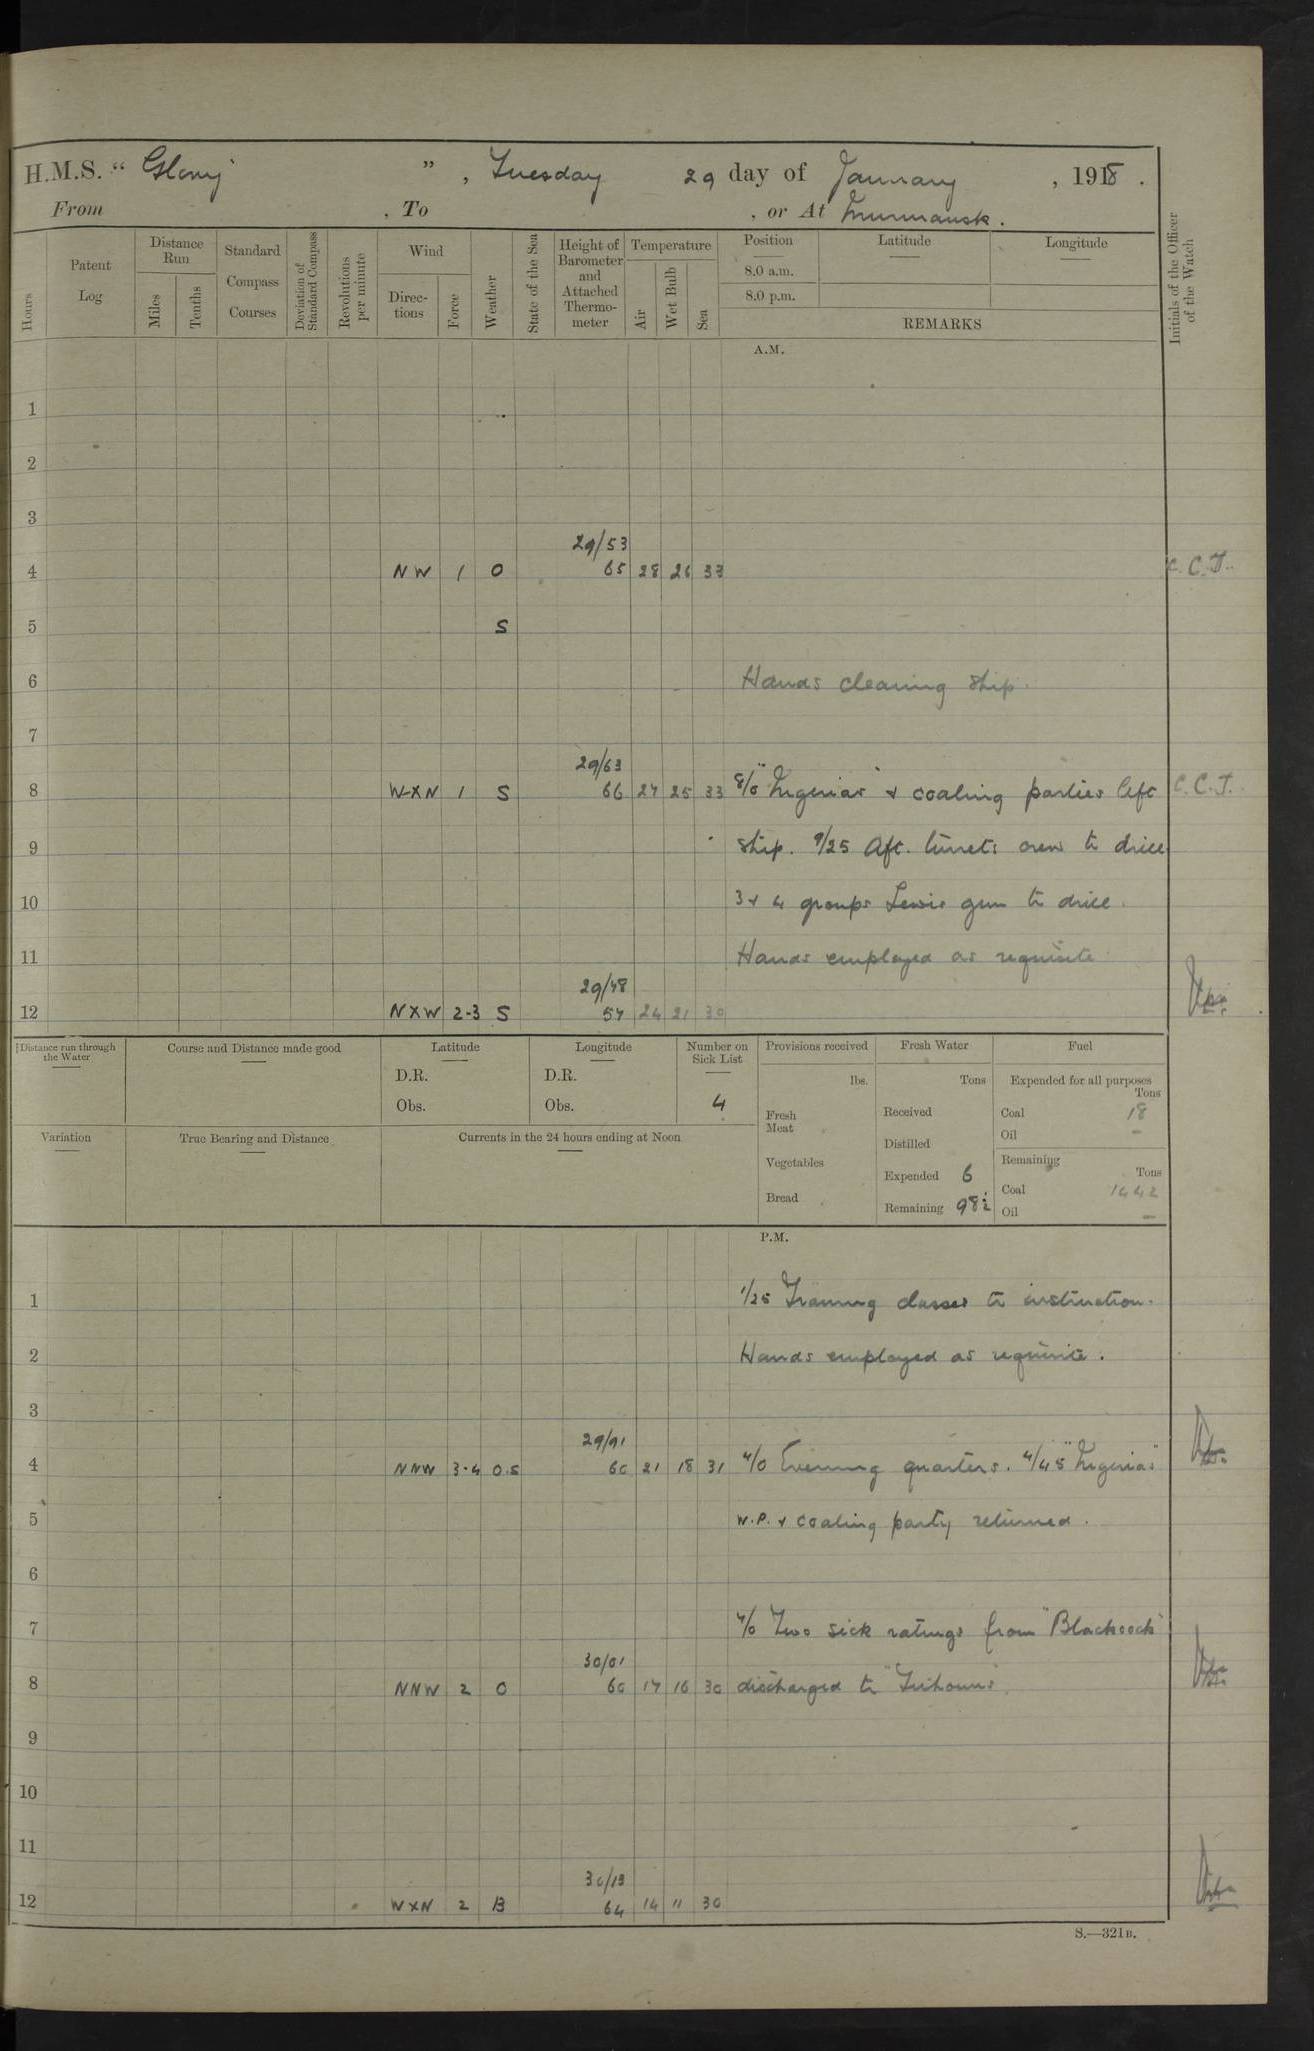 H.M.S. "Glory", Tuesday 29 day of January, 1918.
From , To , or At Murmansk.
Hours
Patent Log
Distance Run
Miles
Tenths
Standard Compass Courses
Deviation of Standard Compass
Revolutions per minute
Wind
Directions
Force
Weather
State of the Sea
Height of Barometer and Attached Thermometer
Temperature
Air
Wet Bulb
Sea
Position
8.0 a.m.
8.0 p.m.
Latitude
Longitude
REMARKS
Initials of the Officer of the Watch
A.M.
1
2
3
29/53
4 NW 1 O 65 28 26 33 C.C.J.
5 S
6 Hands cleaning ship.
7
29/63
8 WXN 1 S 66 27 25 33 8/0 "Nigerias" & coaling parties left C.C.J.
9 ship. 9/25 Aft. turrets crew to drill
10 3 & 4 groups Lewis gun to drill.
11 Hands employed as requisite
29/78
12 NXW 2-3 S 57 24 21 30
Distance run through the Water
Course and Distance made good
Latitude
D.R.
Obs.
Longitude
D.R.
Obs.
Number on Sick List
4
Provisions received
lbs.
Fresh Meat
Vegetables
Bread
Fresh Water
Tons
Received
Distilled
Expended 6
Remaining 98½
Fuel
Expended for all purposes
Tons
Coal 18
Oil -
Remaining
Tons
Coal 1442
Oil -
Variation
True Bearing and Distance
Currents in the 24 hours ending at Noon
P.M.
1 1/25 Training classes to instruction.
2 Hands employed as requisite.
3
29/91
4 NNW 3-4 O.S 60 21 18 31 4/0 Evening quarters. 4/45 "Nigerias"
5 W.P. & coaling party returned.
6
7 7/0 Two sick ratings from "Blackcock"
30/01
8 NNW 2 O 60 17 16 30 discharged to
9
10
11
30/13
12 WXN 2 B 64 14 11 30
S.—321B.